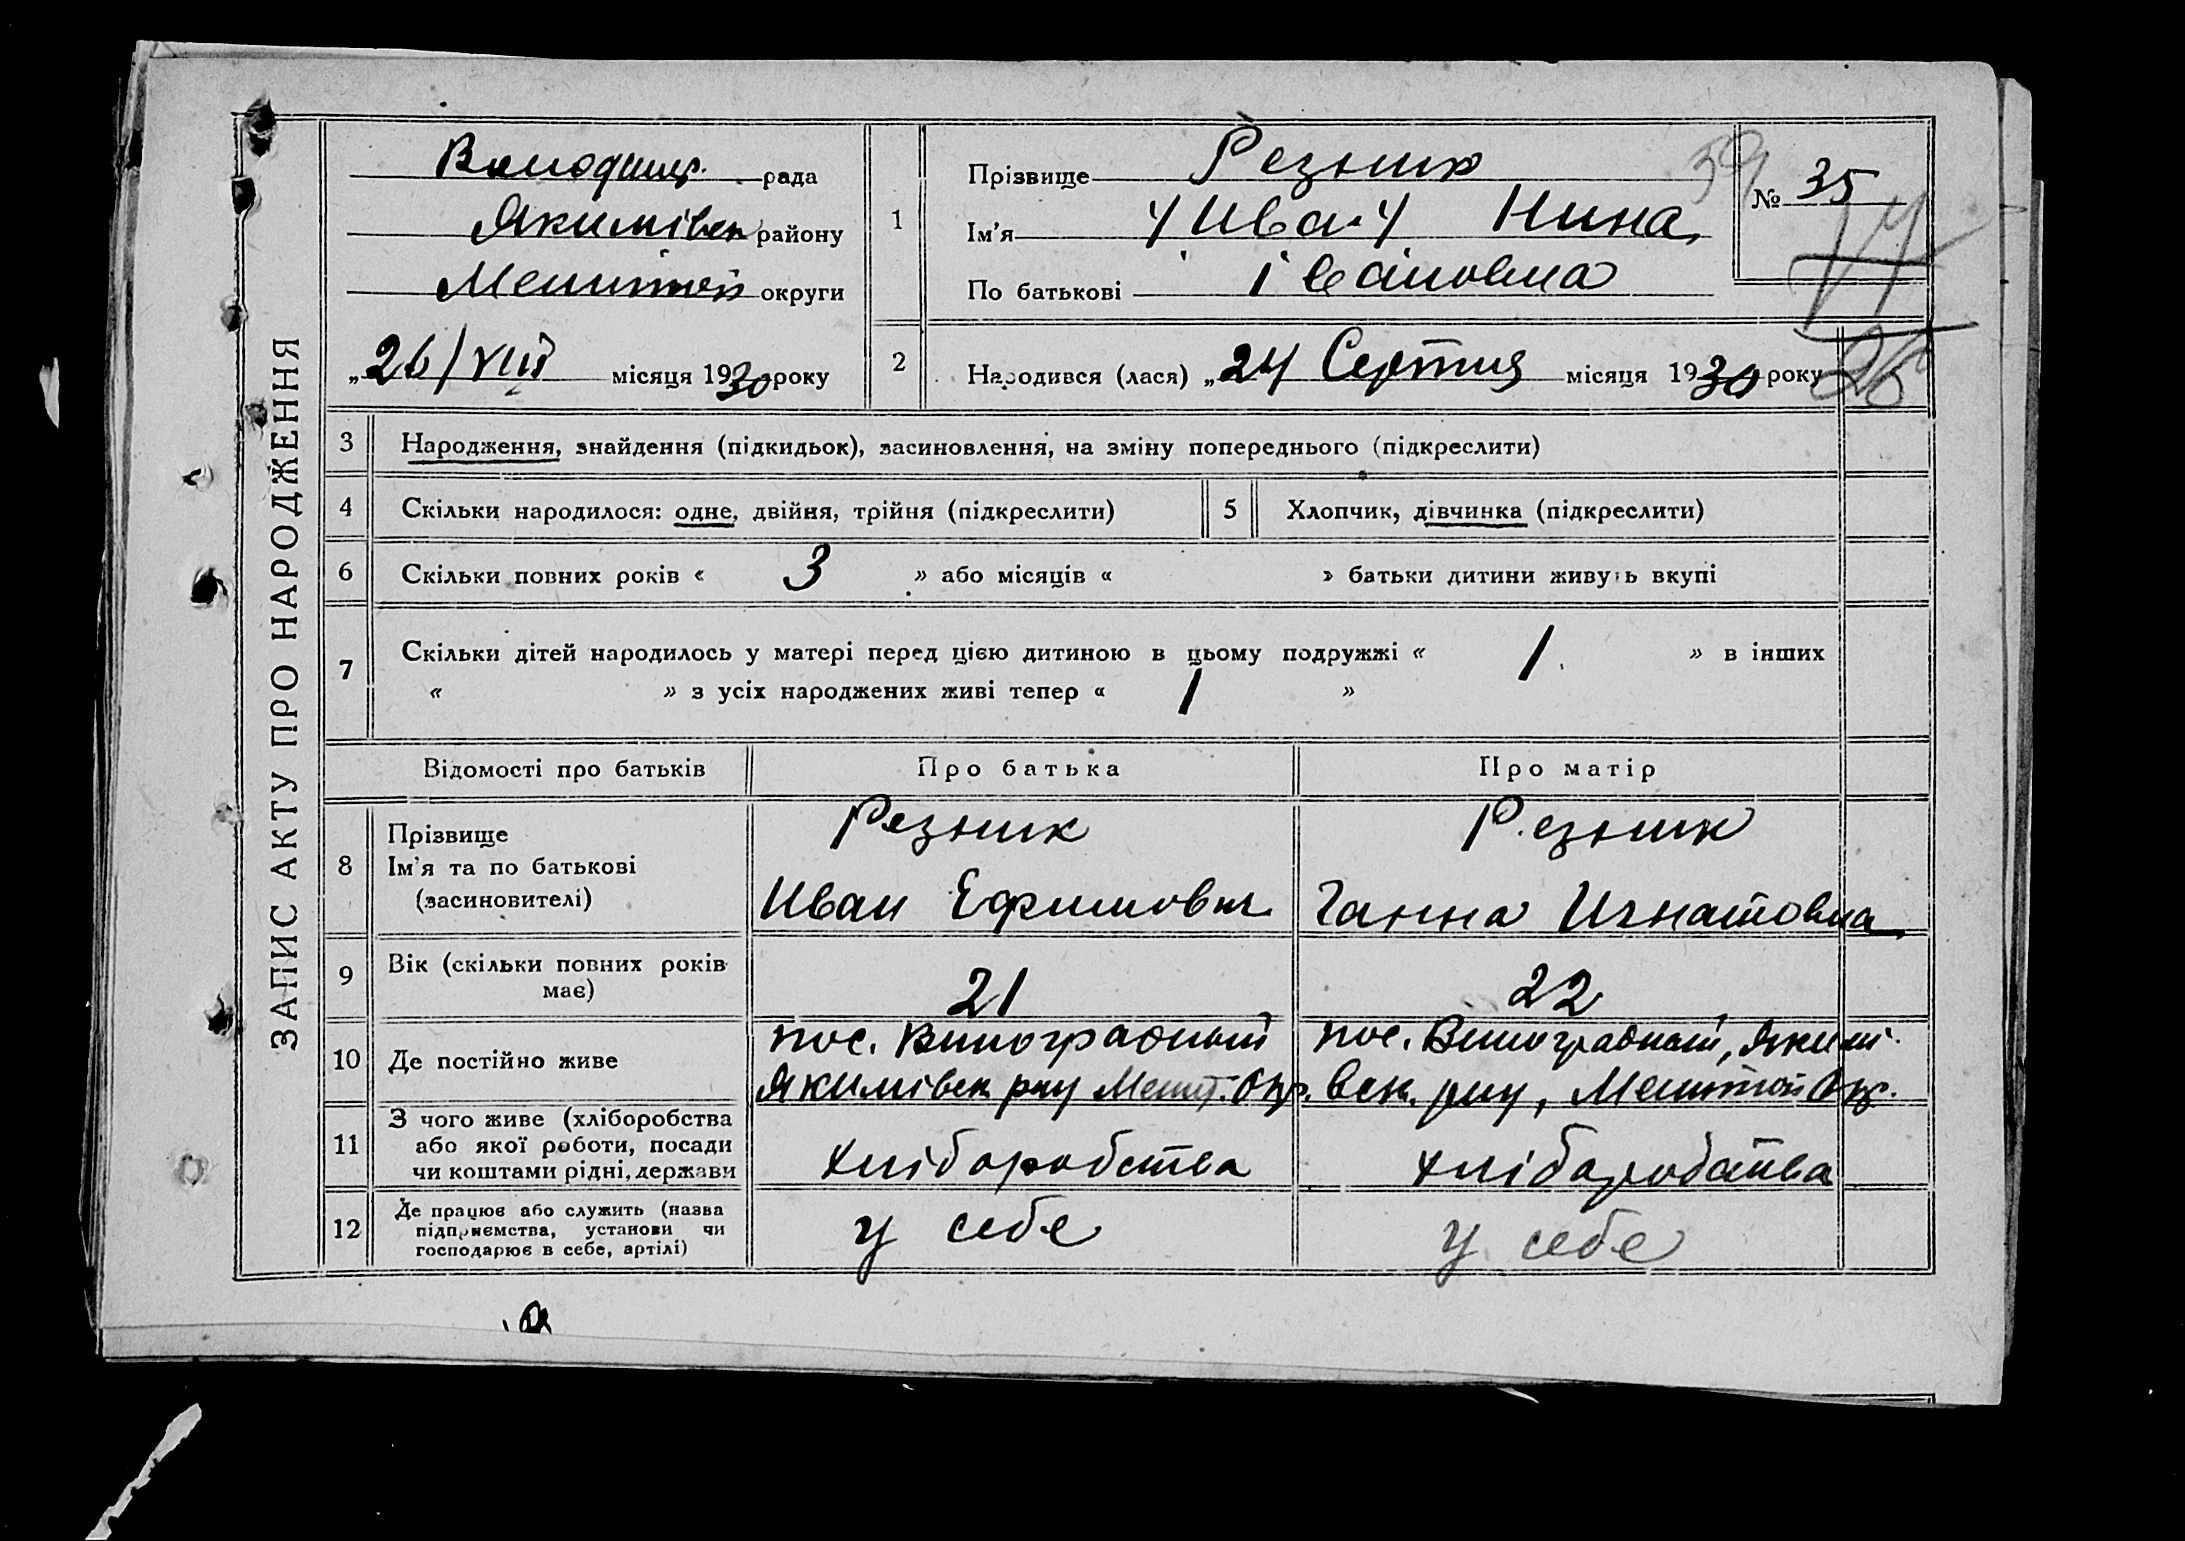 ЗАПИС АКТУ ПРО НАРОДЖЕННЯ
Володимир. рада
Якимівськ району
Мелитоп округи
„26/VIII місяця 1930 року
1
Прізвище Резник
Ім'я Иван Нина
По батькові Івановна
№ 35
59
14
26
2
Народився (лася) „24 Серпня місяця 1930 року
3 Народження, знайдення (підкидьок), засиновлення, на зміну попереднього (підкреслити)
4 Скільки народилося: одне, двійня, трійня (підкреслити) 5 Хлопчик, дівчинка (підкреслити)
6 Скільки повних років « 3 » або місяців « » батьки дитини живуть вкупі
7 Скільки дітей народилось у матері перед цією дитиною в цьому подружжі « 1 » в інших
« » з усіх народжених живі тепер « 1 »
Відомості про батьків Про батька Про матір
8 Прізвище
Ім'я та по батькові
(засиновителі)
Резник
Иван Ефимович
Резник
Ганна Игнатовна
9 Вік (скільки повних років
має)
21
22
10 Де постійно живе
пос. Виноградный
Якимівськ р-ну Мелит. Окр.
пос. Виноградный, Якимі
вськ. р-ну, Мелитоп Окр.
11 З чого живе (хліборобства
або якої роботи, посади
чи коштами рідні, держави
хліборобства
хліборобства
12 Де працює або служить (назва
підприємства, установи чи
господарює в себе, артілі)
у себе
у себе